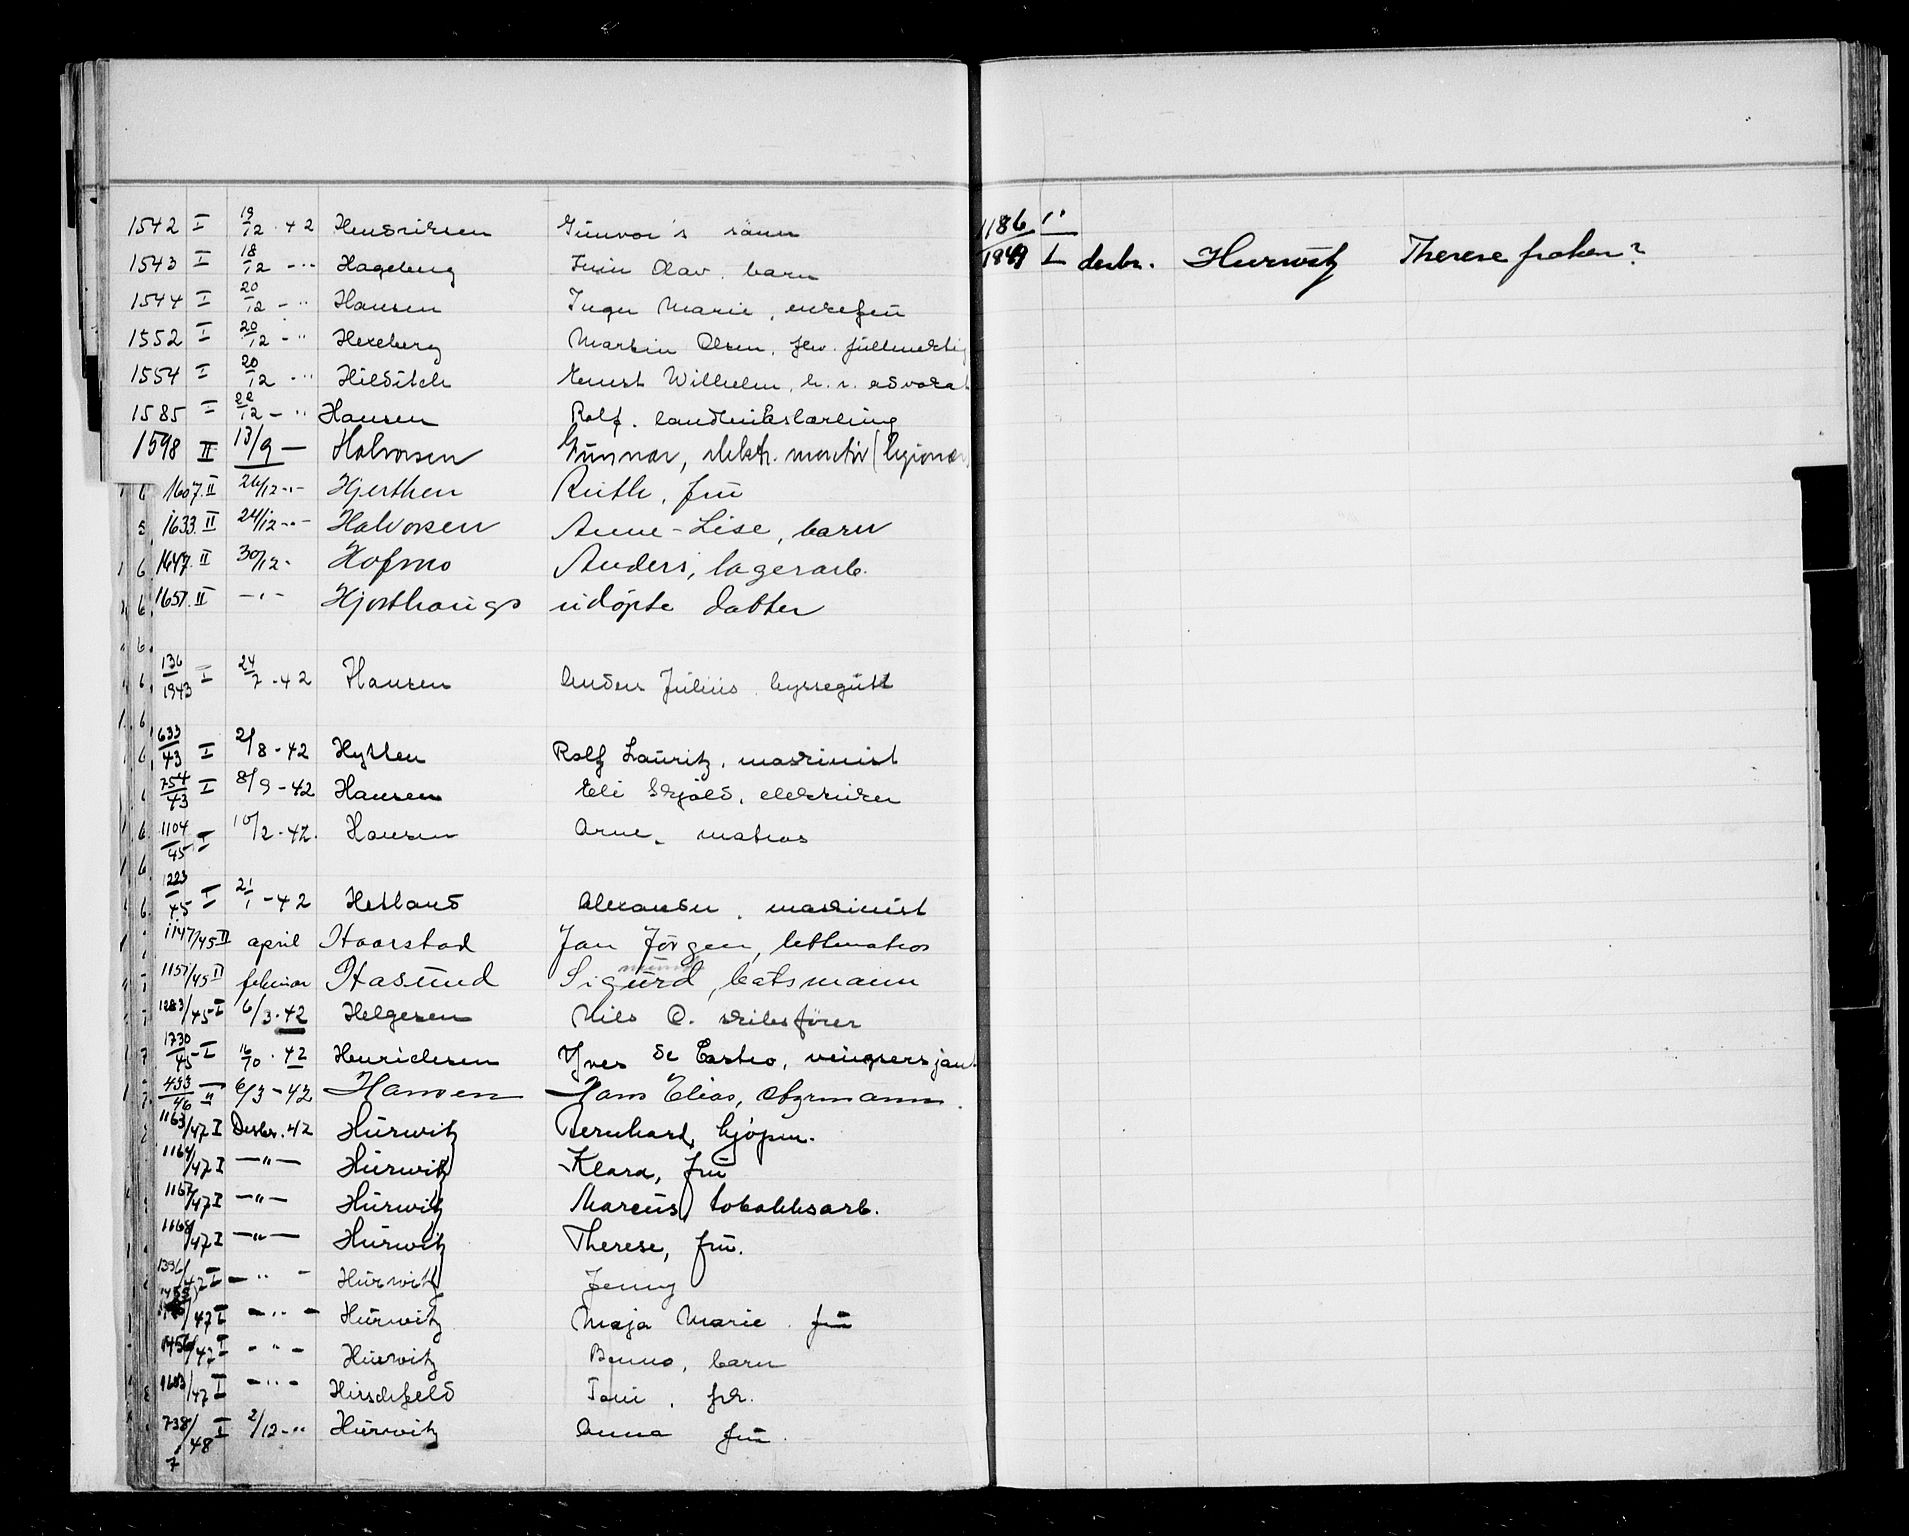 1542 I 19/12 - 42 Henriksen Gunvor's sønn
1543 I 18/12 - " Hageberg Svein Olav, barn
1544 I 20/12 - " Hansen Inger Marie, enkefru
1552 I 20/12 - " Hexeberg Martin Olsen, fhv. fullmektig
1554 I 20/12 - " Hilditch Ernst Wilhelm, h. r. advokat
1585 I 22/12 - " Hansen Rolf. landbrukslærling
1598 II 13/9 — Halvorsen Gunnar, elektr. montør (legionær)
1607 II 26/12 - " - Hjerthen Ruth, fru
1633 II 24/12 - " - Halvorsen Anne-Lise, barn
1647 II 30/12 - Hofmo Anders, lagerarb.
1657 II - " - Hjorthaugs udøpte datter
136/1943 I 24/7 - 42 Hansen Anders Julius byssegutt
633/43 I 2/8 - 42 Hytten Rolf Lauritz, maskinist
754/43 I 8/9 - 42 Hansen Eli Skjold, elektriker
1104/45 I 10/2 - 42. Hansen Arne, matros
1223/45 I 21/1 - 42 Hetland Alexander, maskinist
1147/45 II april Haarstad Jan Jörgen, lettmatros
1151/45 II februar Hasund Sigurd, båtsmann
1283/45 I 6/3 - 42 Helgesen Nils O. skibsfører
1730/45 I 16/10 - 42 Henrichsen Yves de Castro, vingsersjant
433/46 II 6/3 - 42 Hansen Hans Elias, styrmann
1163/47 I Desbr. 42 Hurwitz Bernhard, kjøpm.
1164/47 I — " — Hurwitz Klara, fru
1167/47 I — " — Hurwitz Marcus, tobakksarb.
1168/47 I — " — Hurwitz Therese, fru.
1396/47 I — " — Hurwitz Jenny
1455/47 I — " — Hurwitz Maja Marie fru
1456/47 I - " - Hurwitz Benno, barn
1603/47 I - " - Hirschfeld Toni, frk.
738/48 I 2/12 - " Hurwitz Anna fru
7
1186/1949 I desbr. Hurwitz Therese frøken?